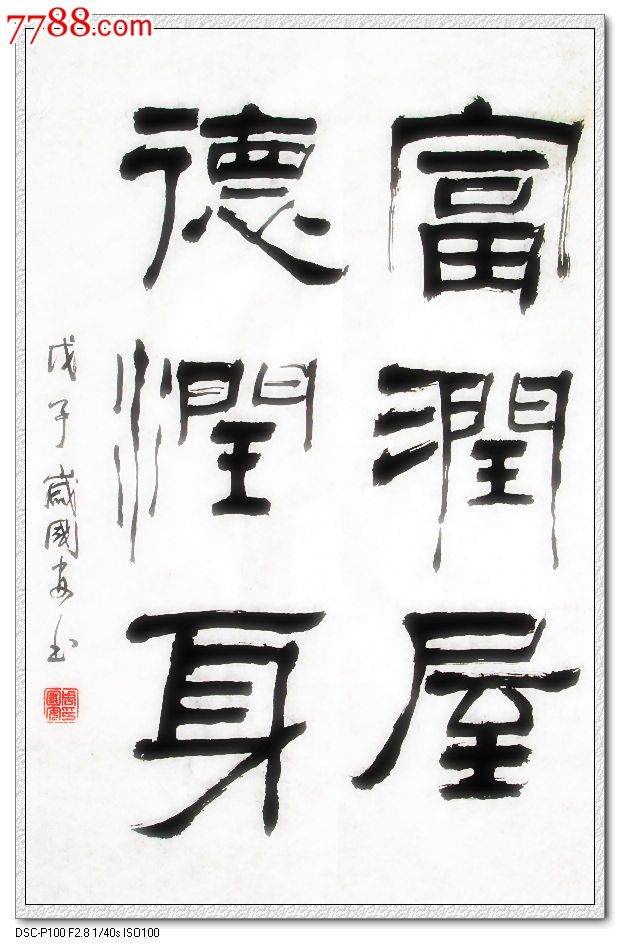 7788.com
富潤屋
德潤身
戊子歲國安书
DSC-P100 F2.8 1/40s ISO100